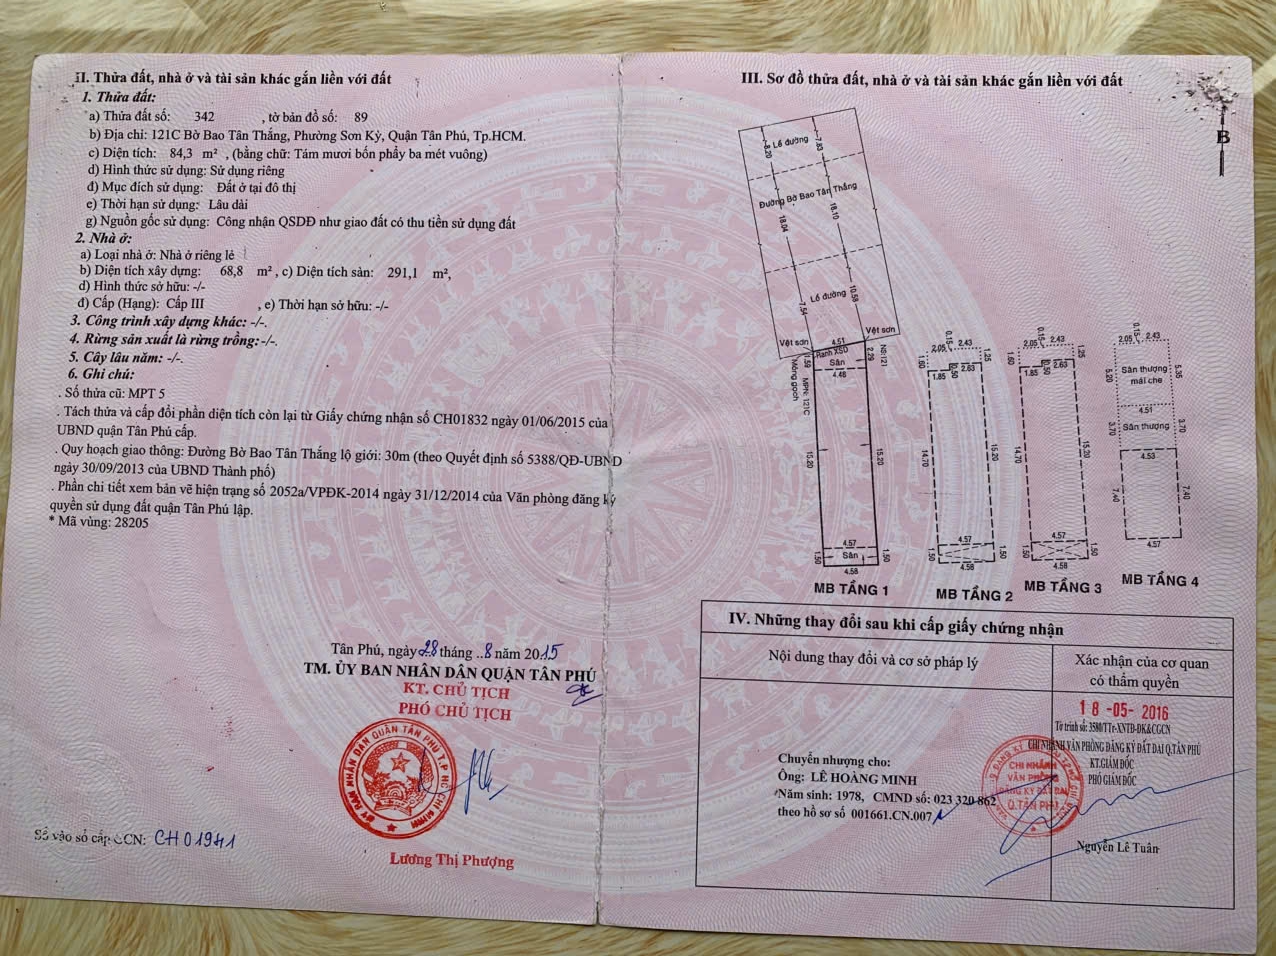 II. Thửa đất, nhà ở và tài sản khác gắn liền với đất
1. Thửa đất:
a) Thửa đất số: 342 , tờ bản đồ số: 89
b) Địa chỉ: 121C Bờ Bao Tân Thắng, Phường Sơn Kỳ, Quận Tân Phú, Tp.HCM.
c) Diện tích: 84,3 m² , (bằng chữ: Tám mươi bốn phẩy ba mét vuông)
d) Hình thức sử dụng: Sử dụng riêng
đ) Mục đích sử dụng: Đất ở tại đô thị
e) Thời hạn sử dụng: Lâu dài
g) Nguồn gốc sử dụng: Công nhận QSDĐ như giao đất có thu tiền sử dụng đất
2. Nhà ở:
a) Loại nhà ở: Nhà ở riêng lẻ
b) Diện tích xây dựng: 68,8 m² , c) Diện tích sàn: 291,1 m²,
d) Hình thức sở hữu: -/-
đ) Cấp (Hạng): Cấp III , e) Thời hạn sở hữu: -/-
3. Công trình xây dựng khác: -/-.
4. Rừng sản xuất là rừng trồng:-/-.
5. Cây lâu năm: -/-.
6. Ghi chú:
. Số thửa cũ: MPT 5
. Tách thửa và cấp đổi phần diện tích còn lại từ Giấy chứng nhận số CH01832 ngày 01/06/2015 của
UBND quận Tân Phú cấp.
. Quy hoạch giao thông: Đường Bờ Bao Tân Thắng lộ giới: 30m (theo Quyết định số 5388/QĐ-UBND
ngày 30/09/2013 của UBND Thành phố)
. Phần chi tiết xem bản vẽ hiện trạng số 2052a/VPĐK-2014 ngày 31/12/2014 của Văn phòng đăng ký
quyền sử dụng đất quận Tân Phú lập.
* Mã vùng: 28205
Tân Phú, ngày 28 tháng .8 năm 2015
TM. ỦY BAN NHÂN DÂN QUẬN TÂN PHÚ
KT. CHỦ TỊCH
PHÓ CHỦ TỊCH
ỦY BAN NHÂN DÂN QUẬN TÂN PHÚ T.P HỒ CHÍ MINH
Lương Thị Phượng
Số vào sổ cấp GCN: CH01941
III. Sơ đồ thửa đất, nhà ở và tài sản khác gắn liền với đất
B
8.20 Lề đường 7.83
Đường Bờ Bao Tân Thắng
18.04 18.10
7.54 Lề đường 10.58
Vệt sơn Vệt sơn
4.51
Ranh XSD
1.59 Sân 2.29 NS:121
4.48
Móng gạch MPK: 121C
15.20 15.20
4.57
1.50 Sân 1.50
4.58
MB TẦNG 1
0.15
2.05 2.43
1.60 1.25
1.85 0.50 2.63
14.70 15.20
4.57
1.50 1.50
4.58
MB TẦNG 2
0.15
2.05 2.43
1.60 1.25
1.85 0.50 2.63
14.70 15.20
4.57
1.50 1.50
4.58
MB TẦNG 3
0.15
2.05 2.43
5.20 Sân thượng mái che 5.35
4.51
3.70 Sân thượng 3.70
4.53
7.40 7.40
4.57
MB TẦNG 4
IV. Những thay đổi sau khi cấp giấy chứng nhận
Nội dung thay đổi và cơ sở pháp lý
Xác nhận của cơ quan
có thẩm quyền
Chuyển nhượng cho:
Ông: LÊ HOÀNG MINH
Năm sinh: 1978, CMND số: 023 320 862
theo hồ sơ số 001661.CN.007
18 -05- 2016
Tờ trình số: 3580/TTr-XNTĐ-ĐK&CGCN
CHI NHÁNH VĂN PHÒNG ĐĂNG KÝ ĐẤT ĐAI Q.TÂN PHÚ
KT.GIÁM ĐỐC
PHÓ GIÁM ĐỐC
CHI NHÁNH
VĂN PHÒNG
ĐĂNG KÝ ĐẤT ĐAI
Q.TÂN PHÚ
Nguyễn Lê Tuân